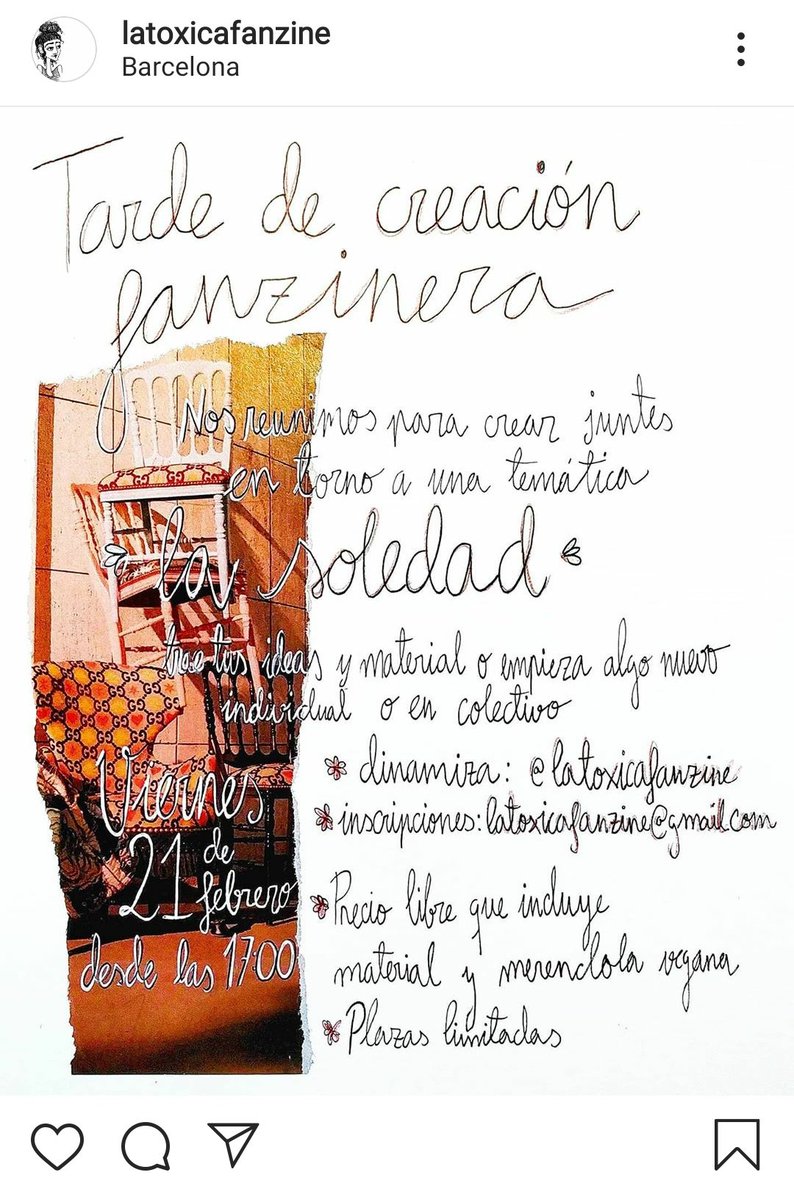 latoxicafanzine
Barcelona
Tarde de creación
fanzinera
Nos reunimos para crear juntes
en torno a una temática
la soledad
trae tus ideas y material o empieza algo nuevo
individual o en colectivo
Viernes
21 de
febrero
desde las 17:00
dinamiza: @latoxicafanzine
inscripciones: latoxicafanzine@gmail.com
Precio libre que incluye
material y merendola vegana
Plazas limitadas